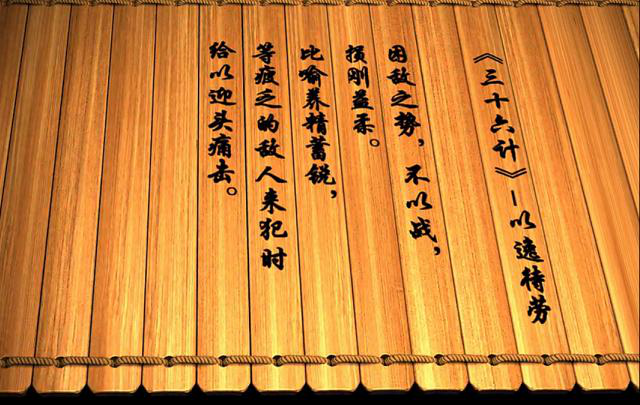 《三十六计》—以逸待劳
困敌之势，不以战，
损刚益柔。
比喻养精蓄锐，
等疲乏的敌人来犯时
给以迎头痛击。